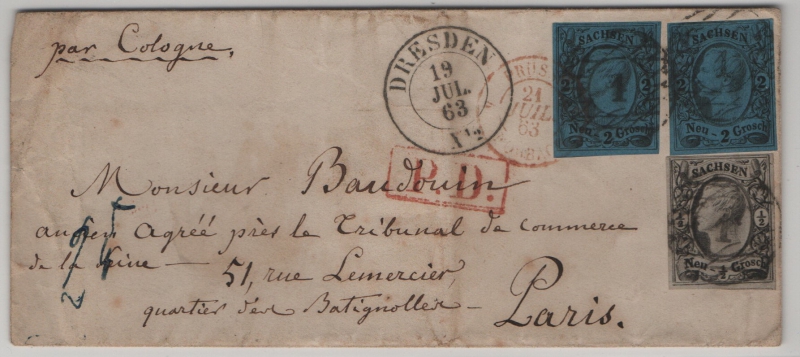 par Cologne,
DRESDEN
19
JUL.
63
X½
PRUS
21
JUIL
63
SACHSEN
2 2
Neu-2 Grosch
SACHSEN
2 2
Neu-2 Grosch
P.D.
SACHSEN
½ ½
Neu-½ Grosch
Monsieur Baudouin
ancien agréé près le Tribunal de commerce
de la Seine —
51, rue Lemercier,
quartier des Batignolles —
Paris.